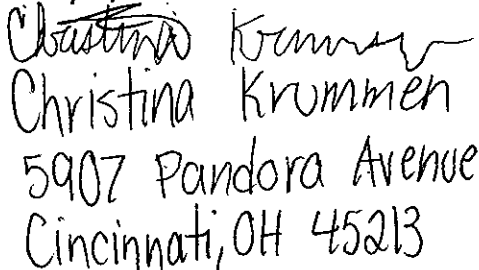 Christina Krummen
Christina Krummen
5907 Pandora Avenue
Cincinnati, OH 45213